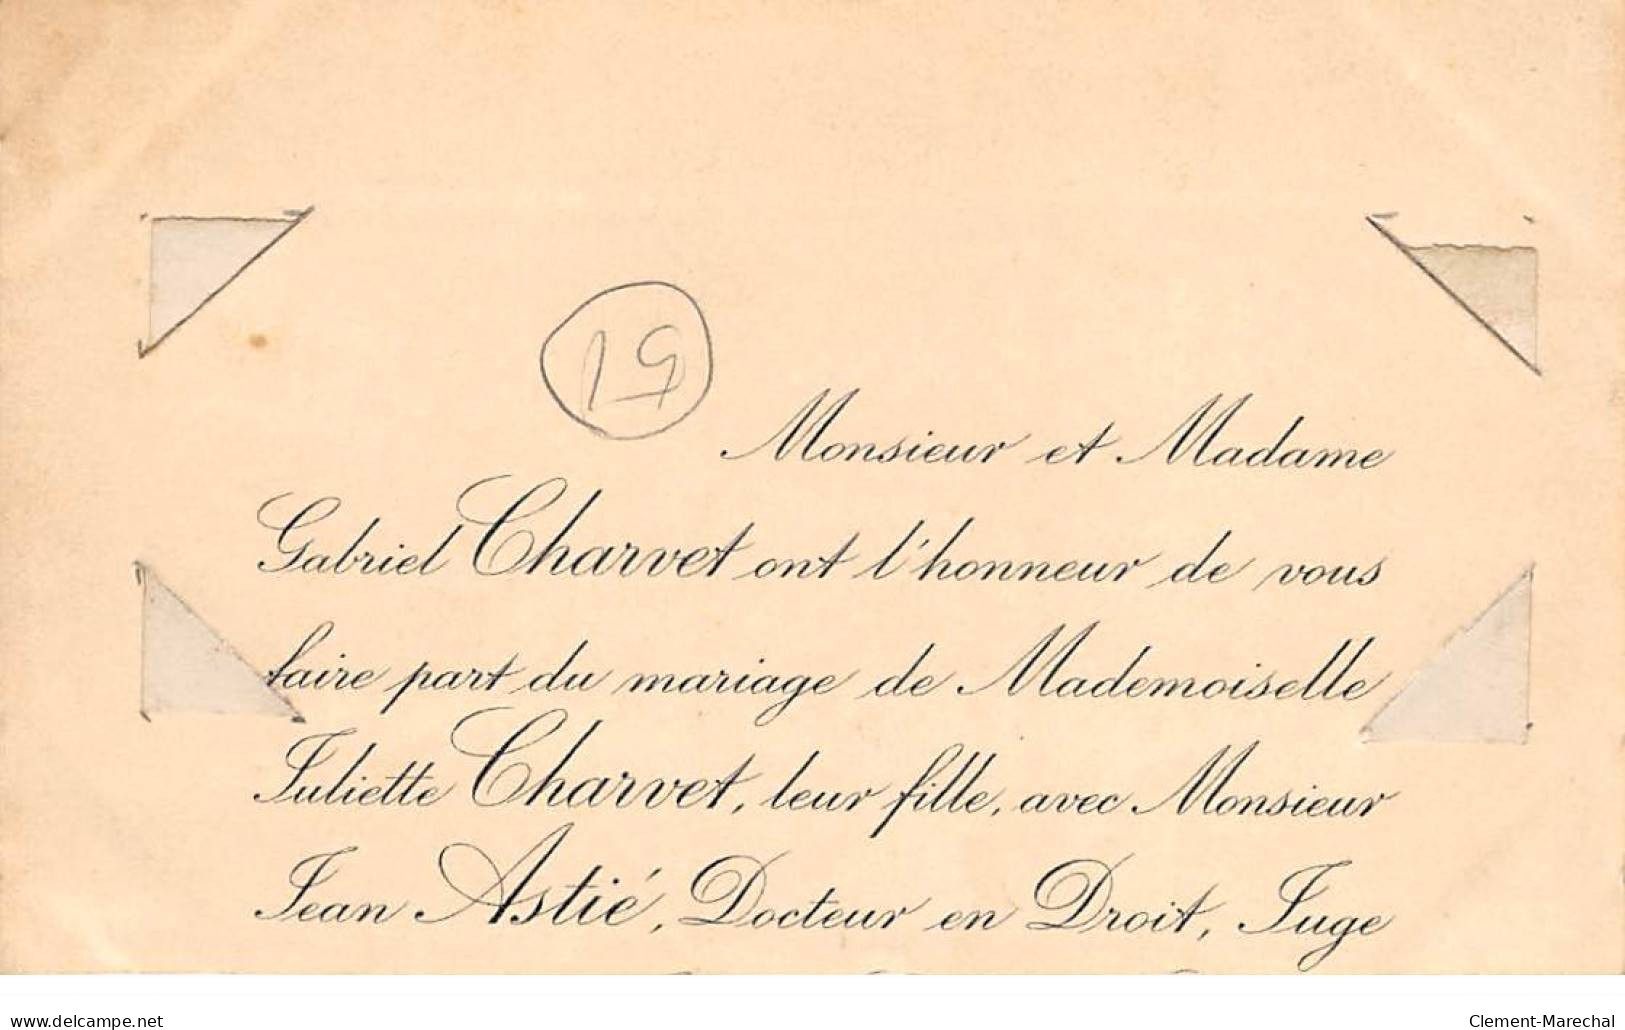 51
Monsieur et Madame
Gabriel Charvet ont l'honneur de vous
faire part du mariage de Mademoiselle
Juliette Charvet, leur fille, avec Monsieur
Jean Astié, Docteur en Droit, Juge
www.delcampe.net
Clement-Marechal